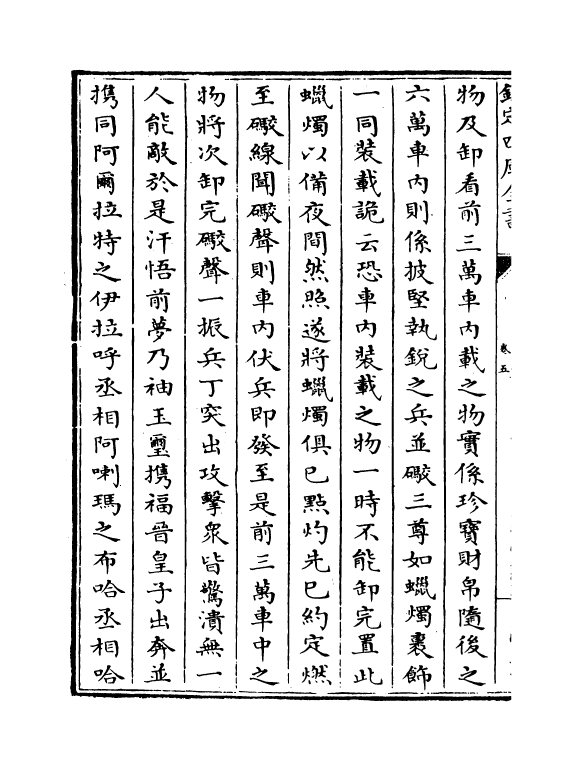 欽定四庫全書
卷五
物及卸看前三萬車內載之物實係珍寶財帛隨後之
六萬車內則係披堅執銳之兵並礮三尊如蠟燭裹飾
一同裝載詭云恐車內裝載之物一時不能卸完置此
蠟燭以備夜間然照遂將蠟燭俱已點灼先已約定燃
至礮線聞礮聲則車內伏兵即發至是前三萬車中之
物將次卸完礮聲一振兵丁突出攻擊衆皆驚潰無一
人能敵於是汗悟前夢乃袖玉璽攜福晉皇子出奔並
攜同阿爾拉特之伊拉呼丞相阿喇瑪之布哈丞相哈